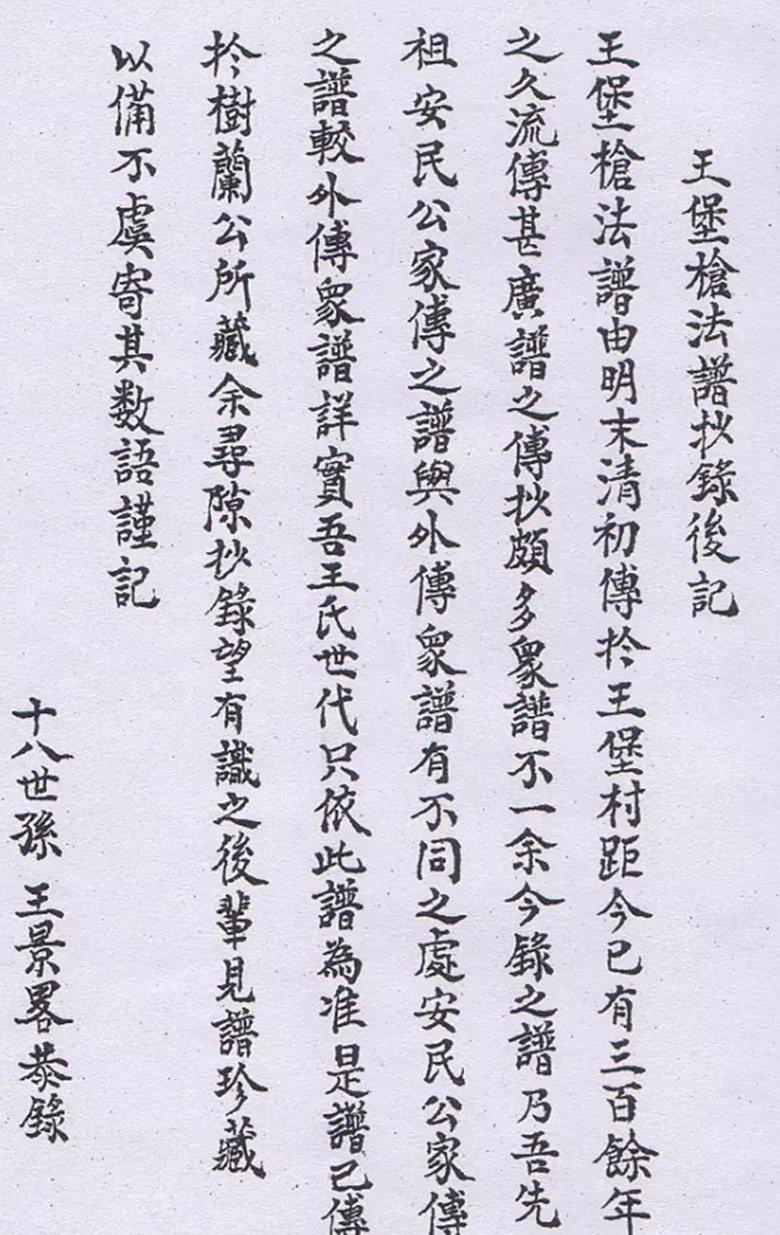 王堡槍法譜抄錄後記
王堡槍法譜由明末清初傳扵王堡村距今已有三百餘年
之久流傳甚廣譜之傳抄頗多衆譜不一余今錄之譜乃吾先
祖安民公家傳之譜與外傳衆譜有不同之處安民公家傳
之譜較外傳衆譜詳實吾王氏世代只依此譜為准是譜已傳
扵樹蘭公所藏余尋隙抄錄望有識之後輩見譜珍藏
以備不虞寄其数語謹記
十八世孫 王景畧恭錄